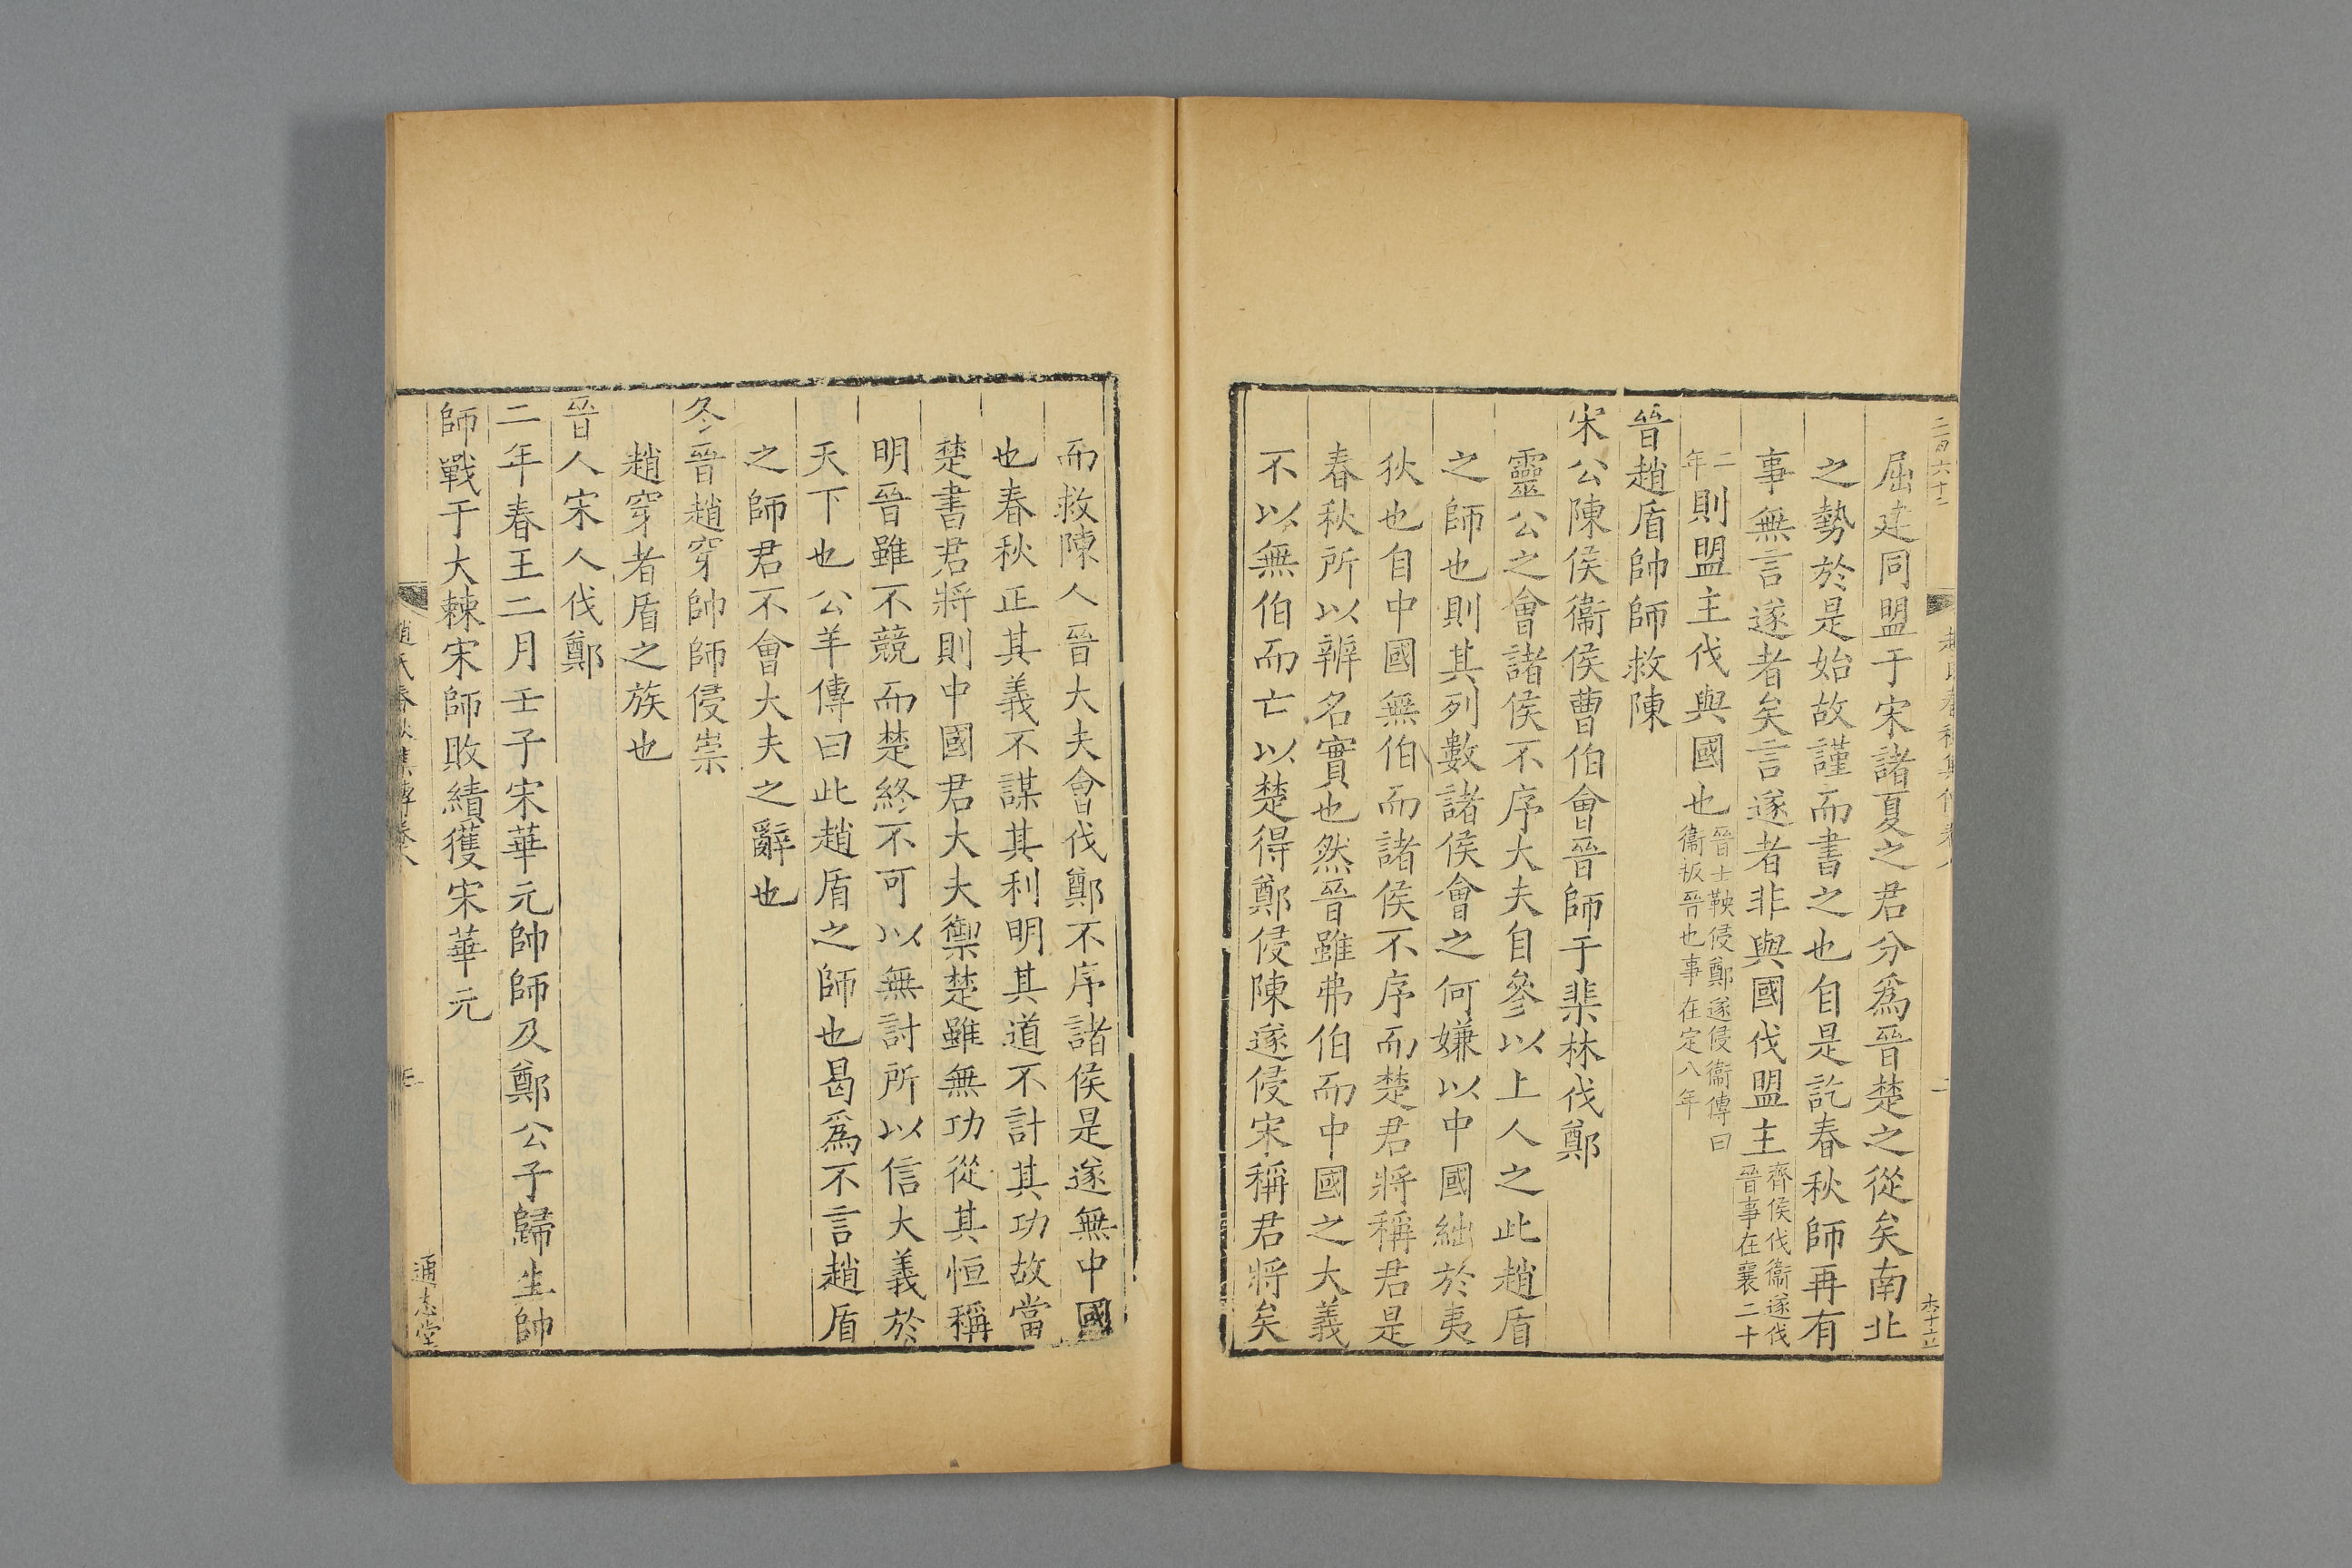 屈建同盟于宋諸夏之君分爲晉楚之從矣南北
之勢於是始故謹而書之也自是訖春秋師再有
事無言遂者矣言遂者非與國伐盟主齊侯伐衞遂伐
晉事在襄二十
二年則盟主伐與國也晉士鞅侵鄭遂侵衞傳曰
衞叛晉也事在定八年
晉趙盾帥師救陳
宋公陳侯衞侯曹伯會晉師于棐林伐鄭
靈公之會諸侯不序大夫自參以上人之此趙盾
之師也則其列數諸侯會之何嫌以中國絀於夷
狄也自中國無伯而諸侯不序而楚君將稱君是
春秋所以辨名實也然晉雖弗伯而中國之大義
不以無伯而亡以楚得鄭侵陳遂侵宋稱君將矣
而救陳人晉大夫會伐鄭不序諸侯是遂無中國
也春秋正其義不謀其利明其道不計其功故當
楚書君將則中國君大夫禦楚雖無功從其恒稱
明晉雖不競而楚終不可以無討所以信大義於
天下也公羊傳曰此趙盾之師也曷爲不言趙盾
之師君不會大夫之辭也
冬晉趙穿帥師侵崇
趙穿者盾之族也
晉人宋人伐鄭
二年春王二月壬子宋華元帥師及鄭公子歸生帥
師戰于大棘宋師敗績獲宋華元
趙氏春秋集傳卷八
通志堂